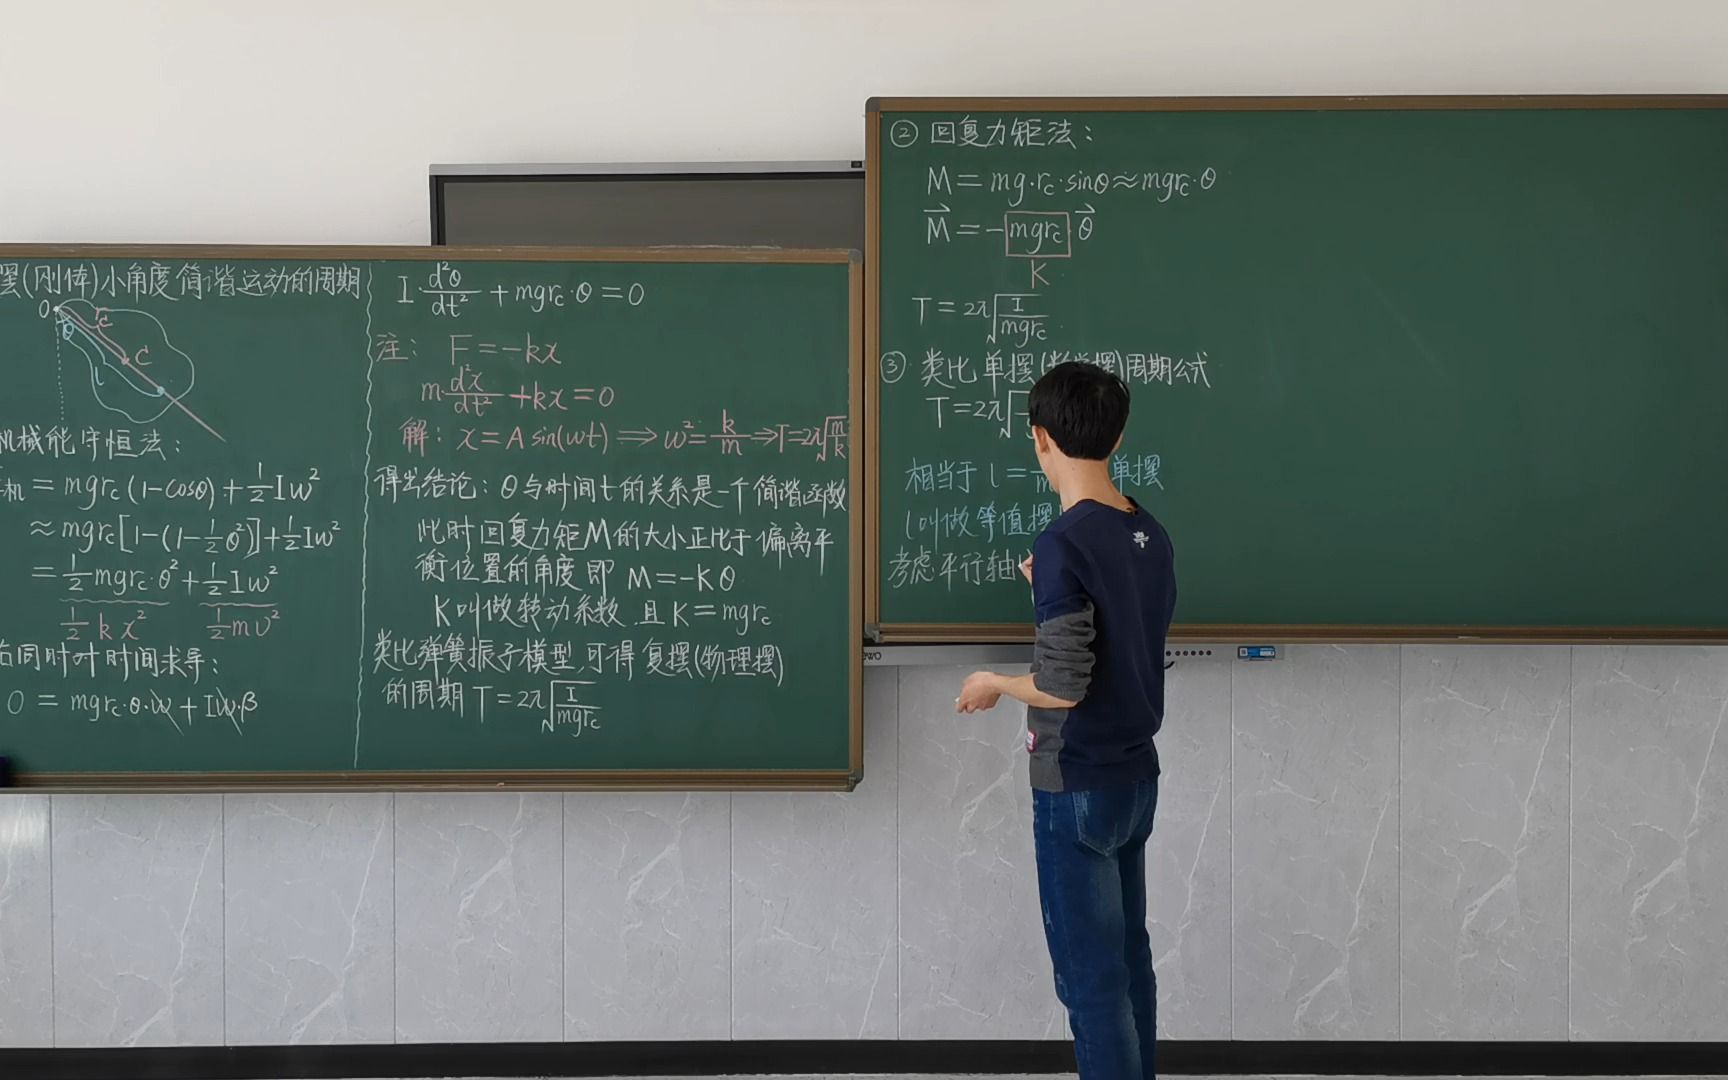 摆(刚体)小角度简谐运动的周期
O
r_c
θ
C
l
机械能守恒法:
机 = mgr_c(1-cosθ) + 1/2 Iω²
≈ mgr_c[1-(1-1/2 θ²)] + 1/2 Iω²
= 1/2 mgr_c·θ² + 1/2 Iω²
1/2 k x² 1/2 m υ²
同时对时间求导:
0 = mgr_c·θ·ω + Iω·β
I·d²θ/dt² + mgr_c·θ = 0
注: F = -kx
m·d²x/dt² + kx = 0
解: x = A sin(ωt) ⟹ ω² = k/m ⟹ T = 2π√(m/k)
得出结论: θ与时间t的关系是一个简谐函数
此时回复力矩M的大小正比于偏离平
衡位置的角度即 M = -Kθ
K叫做转动系数,且 K = mgr_c
类比弹簧振子模型,可得复摆(物理摆)
的周期 T = 2π√(I/mgr_c)
② 回复力矩法:
M = mg·r_c·sinθ ≈ mgr_c·θ
M⃗ = -mgr_c·θ⃗
K
T = 2π√(I/mgr_c)
③ 类比单摆(数学摆)周期公式
T = 2π√
相当于 l = 单摆
l叫做等值摆
考虑平行轴